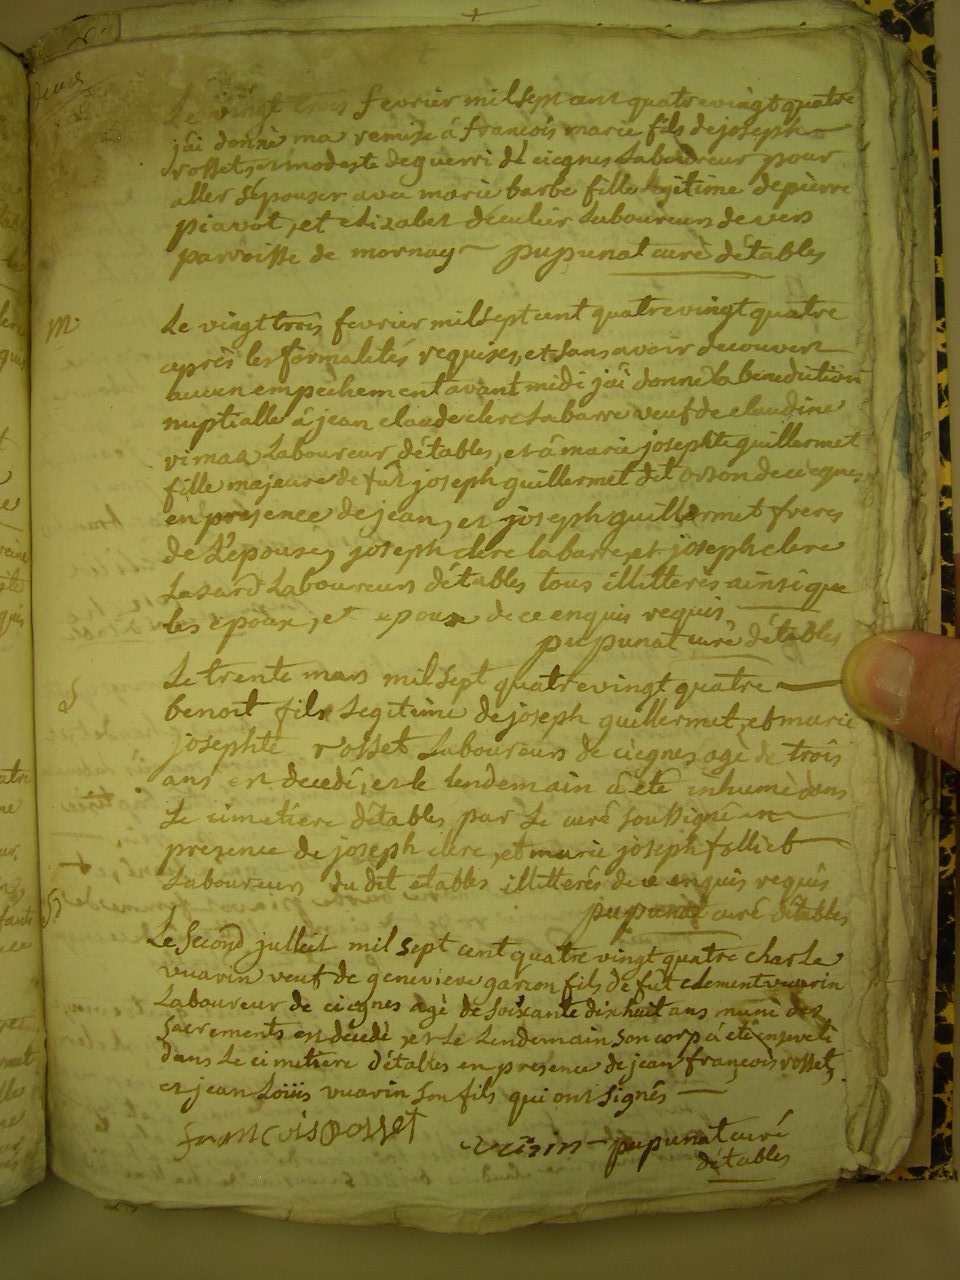 Le vingt trois fevrier mil sept cent quatre vingt quatre
j'ai donné ma remise á francois marie fils de joseph
rosset, et modeste deguerri de ciegnes Laboureur pour
aller Sepouser avec marie barbe fille legitime de pierre
piavot, et elizabet Laboureurs de vers
parroisse de mornay pupunat curé détables
M.
Le vingt trois fevrier mil sept cent quatre vingt quatre
après les formalités requises, et sans avoir decouvert
aucun empêchement avant midi j'ai donné la benediction
nuptialle â jean claude clerc Labarre veuf de claudine
vimas Laboureur détables, et â marie josephte guillermet
fille majeure de fût joseph guillermet dit orson de ciegnes
en presence de jean, et joseph guillermet freres
de L'epouse, joseph clerc labarre, et joseph clerc
Lasard Laboureurs détables tous illitterés ainsi que
les epoux, et epouse de ce enquis requis
pupunat curé détables
S
Le trente mars mil sept quatre vingt quatre
benoit fils Legitime de joseph guillermet, et marie
josephte rosset Laboureurs de ciegnes agé de trois
ans est decedé, et le lendemain â eté inhumé dans
Le cimetiere détables par Le curé soussigné en
presence de joseph clerc, et marie joseph follieb
Laboureurs du dit etables illitterés de ce enquis requis
pupunat curé détables
S
Le Second julleit mil sept cent quatre vingt quatre charle
vuarin veuf de genevieve garcon fils de fût clement vuarin
Laboureur de ciegnes agé de soixante dix huit ans muni des
Sacrements est decedé, et Le Lendemain son corp â eté enseveli
dans Le cimetiere détables en presence de jean françois rosset,
et jean Loüis vuarin son fils qui ont signés
francois Rosset
vuarin pupunat curé
détables